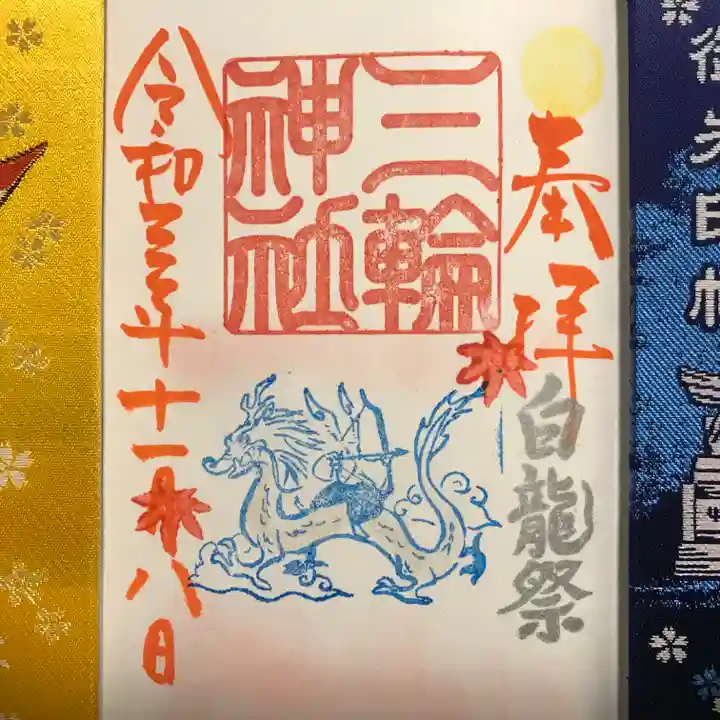 御朱印帳
奉拝
白龍祭
三輪
神社
令和三年十一月八日